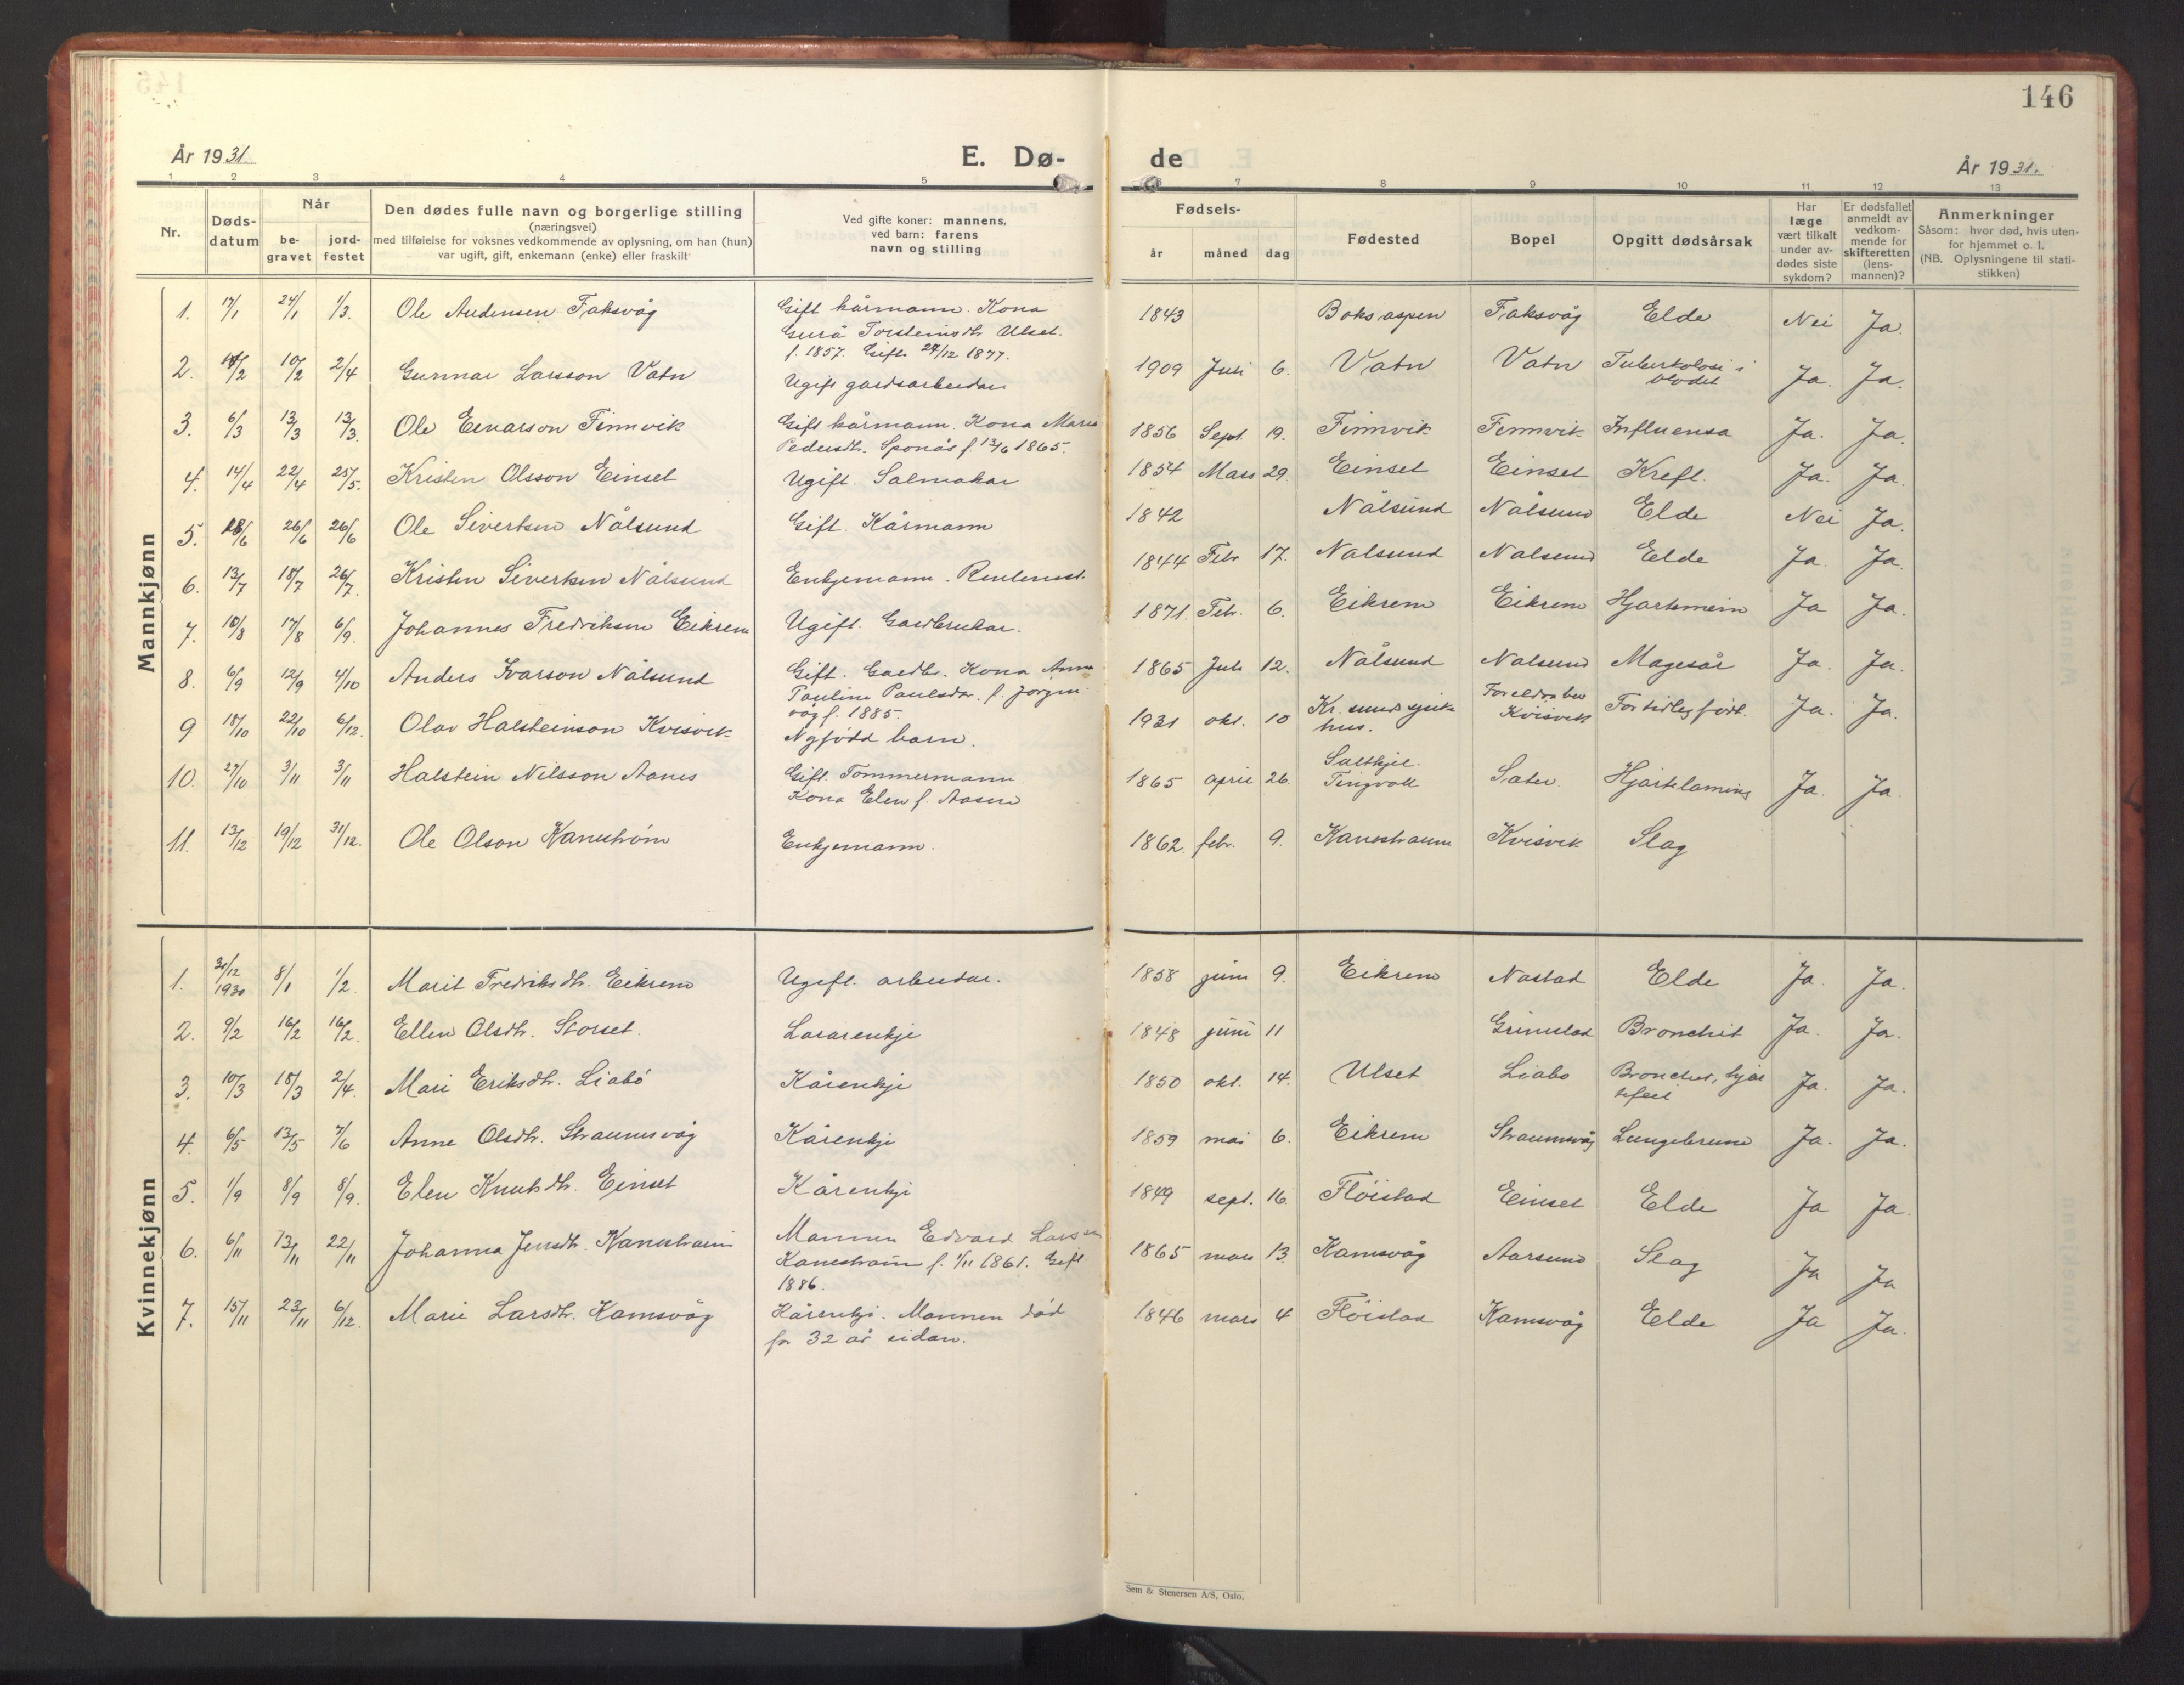 146
År 1931.
E. Dø-
de
År 1931.
1 2 3 4 5 6 7 8 9 10 11 12 13
Nr.
Døds-
datum
Når
be-
gravet
jord-
festet
Den dødes fulle navn og borgerlige stilling
(næringsvei)
med tilføielse for voksnes vedkommende av oplysning, om han (hun)
var ugift, gift, enkemann (enke) eller fraskilt
Ved gifte koner: mannens,
ved barn: farens
navn og stilling
Fødsels-
år
måned
dag
Fødested
Bopel
Opgitt dødsårsak
Har
læge
vært tilkalt
under av-
dødes siste
sykdom?
Er dødsfallet
anmeldt av
vedkom-
mende for
skifteretten
(lens-
mannen)?
Anmerkninger
Såsom: hvor død, hvis uten-
for hjemmet o. l.
(NB. Oplysningene til stati-
stikken)
Mannkjønn
1. 17/1 24/1 1/3. Ole Andensen Faksvåg Gift kårmann. Kona
Gurå Torsteinsdtr. Ulset.
f. 1857. Gift 27/12 1877.
1843 Boksaspen Faksvåg Elde Nei Ja.
2. 10/2 2/4 Gunnar Larsson Vatn Ugift gardsarbeidar
1909 Juli 6. Vatn Vatn Tuberkolose i
blodet Ja. Ja.
3. 6/3 13/3 13/3. Ole Einarson Finnvik Gift kårmann. Kona Maris
Pedersdtr. Sponås f. 13/6 1865.
1856 Sept. 19. Finnvik Finnvik Influensa Ja. Ja.
4. 14/4 22/4 25/5. Kristen Olsson Einset Ugift. Salmakar
1854 Mars 29. Einset Einset Kreft. Ja. Ja.
5. 26/6 26/6 Ole Sivertsen Nålsund Gift. Kårmann
1842 Nålsund Nålsund Elde Nei Ja.
6. 13/7 18/7 26/7. Kristen Sivertsen Nålsund Enkjemann. Rentenist.
1844 Febr 17. Nålsund Nålsund Elde Ja. Ja.
7. 10/8 17/8 6/9. Johannes Fredriksen Eikrem Ugift. Gardbrukar.
1871. Feb. 6. Eikrem Eikrem Hjartemein Ja Ja.
8. 6/9 12/9 4/10 Anders Ivarson Nålsund Gift. Gardbr. Kona Anna
Pauline Paulsdtr. f. Jørgen
våg f. 1885.
1865 Juli 12. Nålsund Nålsund Magesår Ja. Ja.
9 18/10 22/10 6/12. Olav Halsteinson Kvisvik Nyfødd barn.
1931 okt. 10 Kr. sund sjuke
hus. Foreldra bur
Kvisvik For tidleg født. Ja. Ja.
10. 27/10 3/11 3/11 Halstein Nilsson Aanes Gift. Tømmermann
Kona Elen f. Aasen
1865 april 26. Saltkjel.
Tingvoll Sæter Hjartelaming Ja. Ja.
11. 13/12 19/12 31/12. Ole Olson Kanestrøm Enkjemann.
1862. febr. 9. Kanestraum Kvisvik Slag
Kvinnekjønn
1. 30/12
1930 8/1 1/2 Marit Fredriksdtr. Eikrem Ugift. arbeidar.
1858 juni 9. Eikrem Nastad Elde Ja. Ja.
2. 9/2 16/2 16/2. Ellen Olsdtr. Storset. Lærarenkje
1848 juni 11 Grimstad Bronchit Ja. Ja.
3. 10/3 18/3 2/4. Mari Eriksdtr. Liabø Kårenkje
1850 okt. 14. Ulset Liabø Bronchit, hjar
tefeil Ja. Ja.
4. 6/5 13/5 7/6 Anne Olsdtr. Straumsvåg Kårenkje
1859 mai 6. Eikrem Straumsvåg Lungebrune Ja. Ja.
5. 1/9 8/9 8/9. Elen Knutsdtr. Einset Kårenkje
1849 sept. 16. Fløistad Einset Elde Ja Ja.
6. 6/11 13/11 22/11 Johanna Jensdtr. Kanestraum Mannen Edvard Larsen
Kanestraum f. 1/11 1861. Gift
1886.
1865 mars 13. Kamsvåg Aarsund Slag Ja Ja
7. 15/11 23/11 6/12. Marie Larsdtr. Kamsvåg Kårenkje. Mannen død
for 32 år sidan.
1846 mars 4 Fløistad Kamsvåg Elde Ja Ja.
Sem & Stenersen A/S, Oslo.